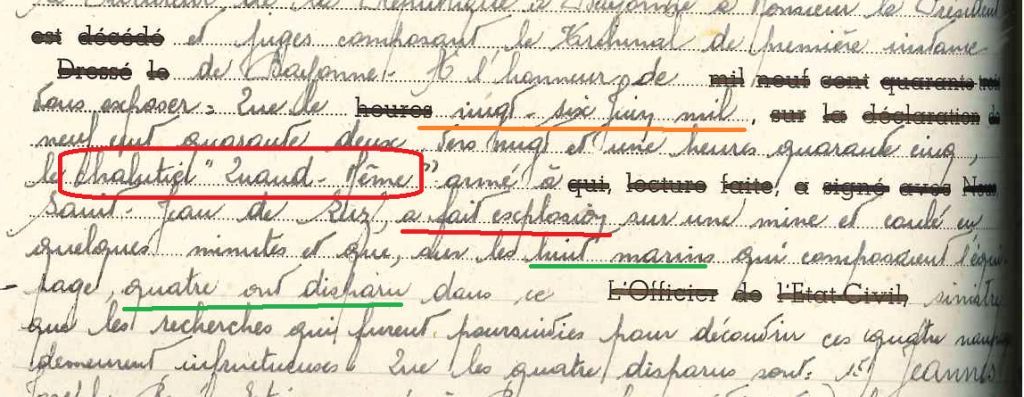 Le Procureur de la République à Bayonne à Monsieur le Président
est décédé et juges composant le Tribunal de première instance
Dressé le de Bayonne - A l'honneur de mil neuf cent quarante
vous exposer : Que le heures vingt-six juin mil, sur la déclaration de
neuf cent quarante deux, vers vingt et une heures quarante cinq,
le chalutier "Quand-Même" armé à qui, lecture faite, a signé avec Nou
Saint-Jean de Luz, a fait explosion sur une mine et coulé en
quelques minutes et que, sur les huit marins qui composaient l'équi-
page, quatre ont disparu dans ce L'Officier de l'Etat-Civil, sinistre
que les recherches qui furent poursuivies pour découvrir ces quatre
demeurent infructueuses - Que les quatre disparus sont : 1° Jeannes
Joseph